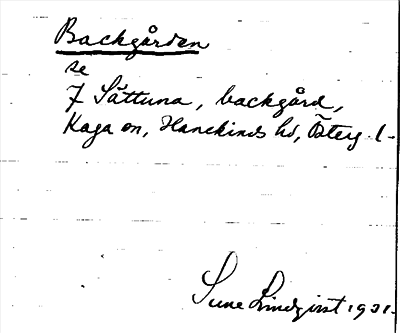 Backgården
se
7 Sättuna, backgård,
Kaga sn, Hanekinds hd, Österg. l.
Sune Lindqvist 1931.